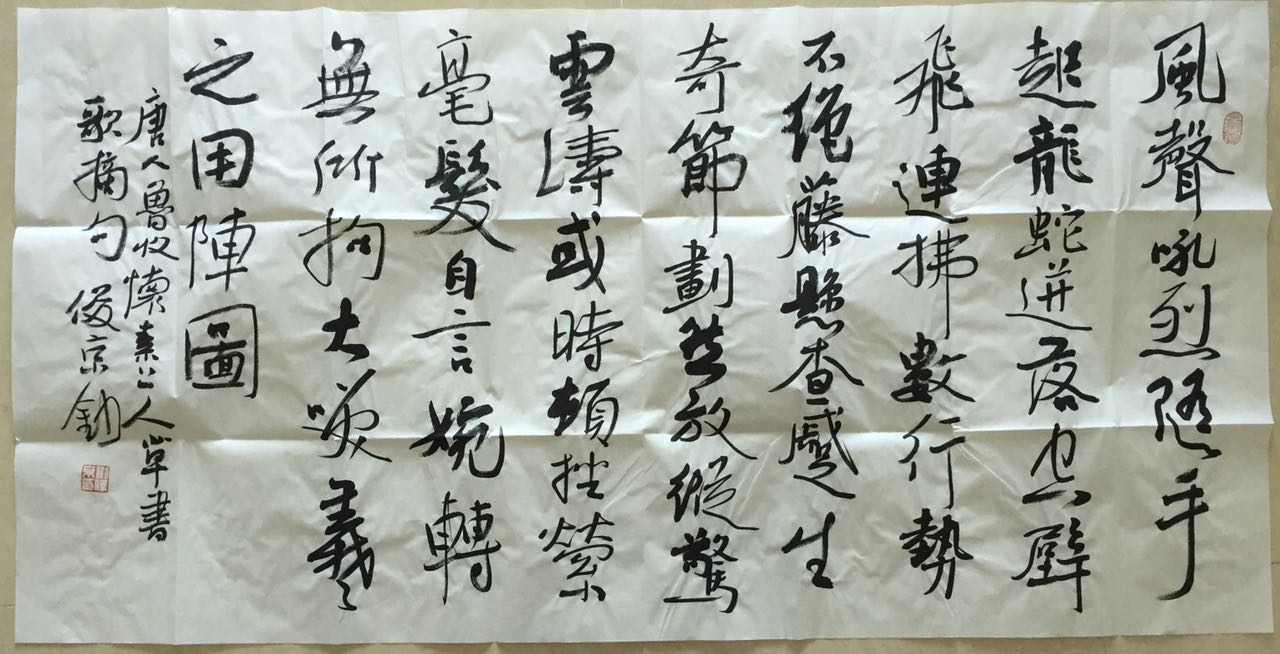 風聲吼烈隨手
起龍蛇迸落空壁
飛連拂數行勢
不絕藤懸查蹙生
奇節劃然放縱驚
雲濤或時頓挫縈
毫髮自言婉轉
無所拘大咲羲
之用陣圖
唐人魯收懷素上人草書
歌摘句 俊宗